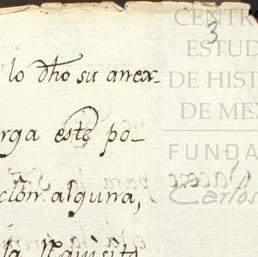 3
lo dho su anex-
rga este po-
cion alguna,
la Requisito
CENTRO
ESTUD
DE HIST
DE MEX
FUNDA
Carlos